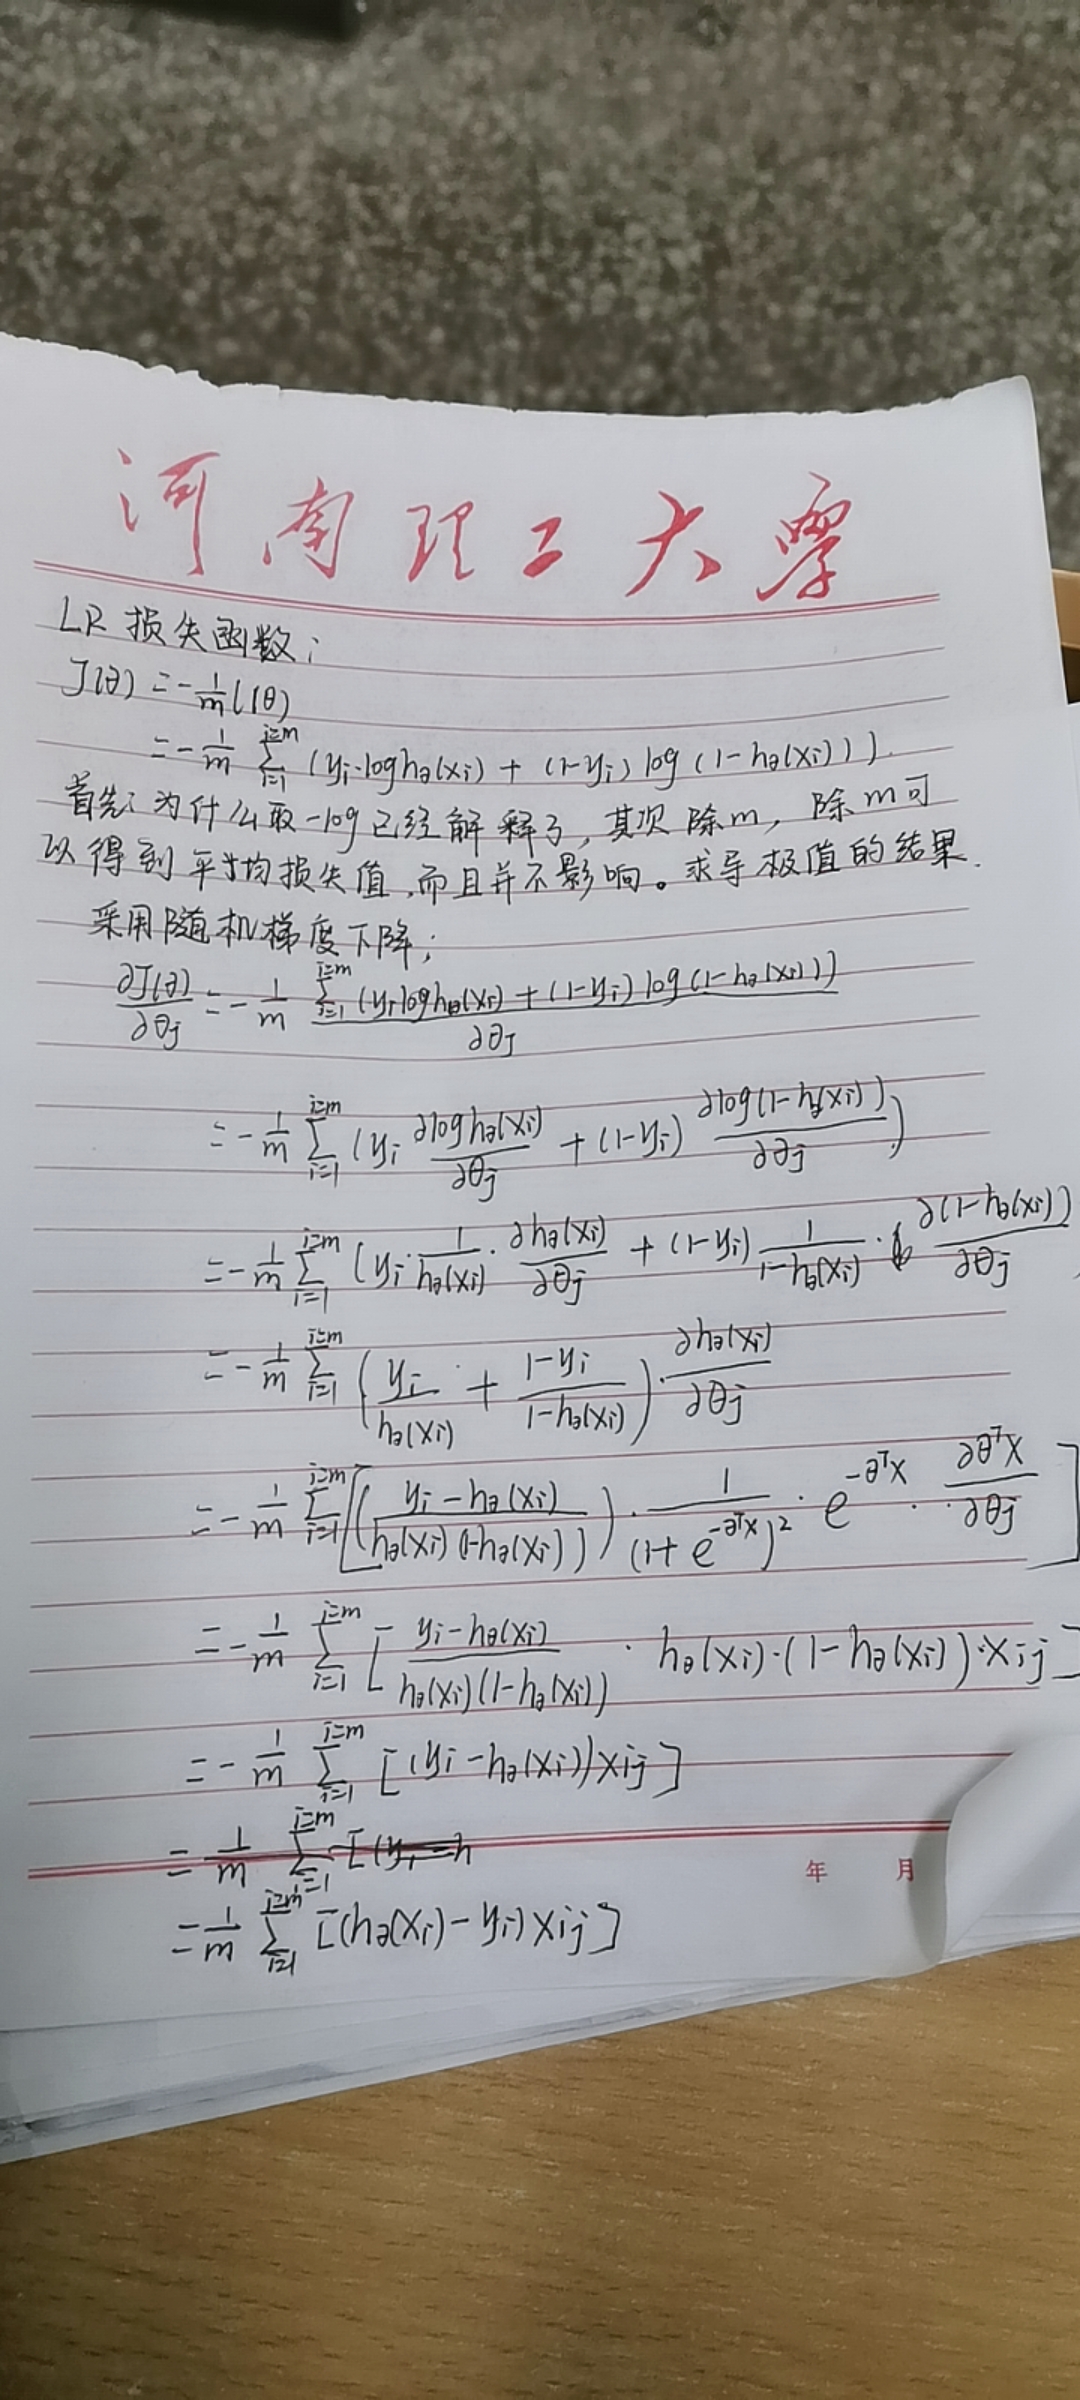 河南理工大学
LR 损失函数:
J(θ) = -1/m l(θ)
= -1/m ∑_{i=1}^{i=m} (yi·log hθ(xi) + (1-yi) log (1-hθ(xi))).
首先:为什么取-log已经解释了,其次除m,除m可
以得到平均损失值,而且并不影响。求导极值的结果.
采用随机梯度下降;
∂J(θ)/∂θj = -1/m ∑_{i=1}^{i=m} (yi log hθ(xi) + (1-yi) log (1-hθ(xi)))/∂θj
= -1/m ∑_{i=1}^{i=m} (yi ∂log hθ(xi)/∂θj + (1-yi) ∂log(1-hθ(xi))/∂θj)
= -1/m ∑_{i=1}^{i=m} (yi · 1/hθ(xi) · ∂hθ(xi)/∂θj + (1-yi) 1/(1-hθ(xi)) · ∂(1-hθ(xi))/∂θj
= -1/m ∑_{i=1}^{i=m} (yi/hθ(xi) + (1-yi)/(1-hθ(xi))) · ∂hθ(xi)/∂θj
= -1/m ∑_{i=1}^{i=m} [((yi-hθ(xi))/(hθ(xi)(1-hθ(xi)))) · 1/(1+e^{-θᵀx})² · e^{-θᵀx} · ∂θᵀx/∂θj]
= -1/m ∑_{i=1}^{i=m} [(yi-hθ(xi))/(hθ(xi)(1-hθ(xi))) · hθ(xi)·(1-hθ(xi))·xij]
= -1/m ∑_{i=1}^{i=m} [(yi-hθ(xi))xij]
= 1/m ∑_{i=1}^{i=m} [(yi-h
年 月
= 1/m ∑_{i=1}^{i=m} [(hθ(xi)-yi)xij]